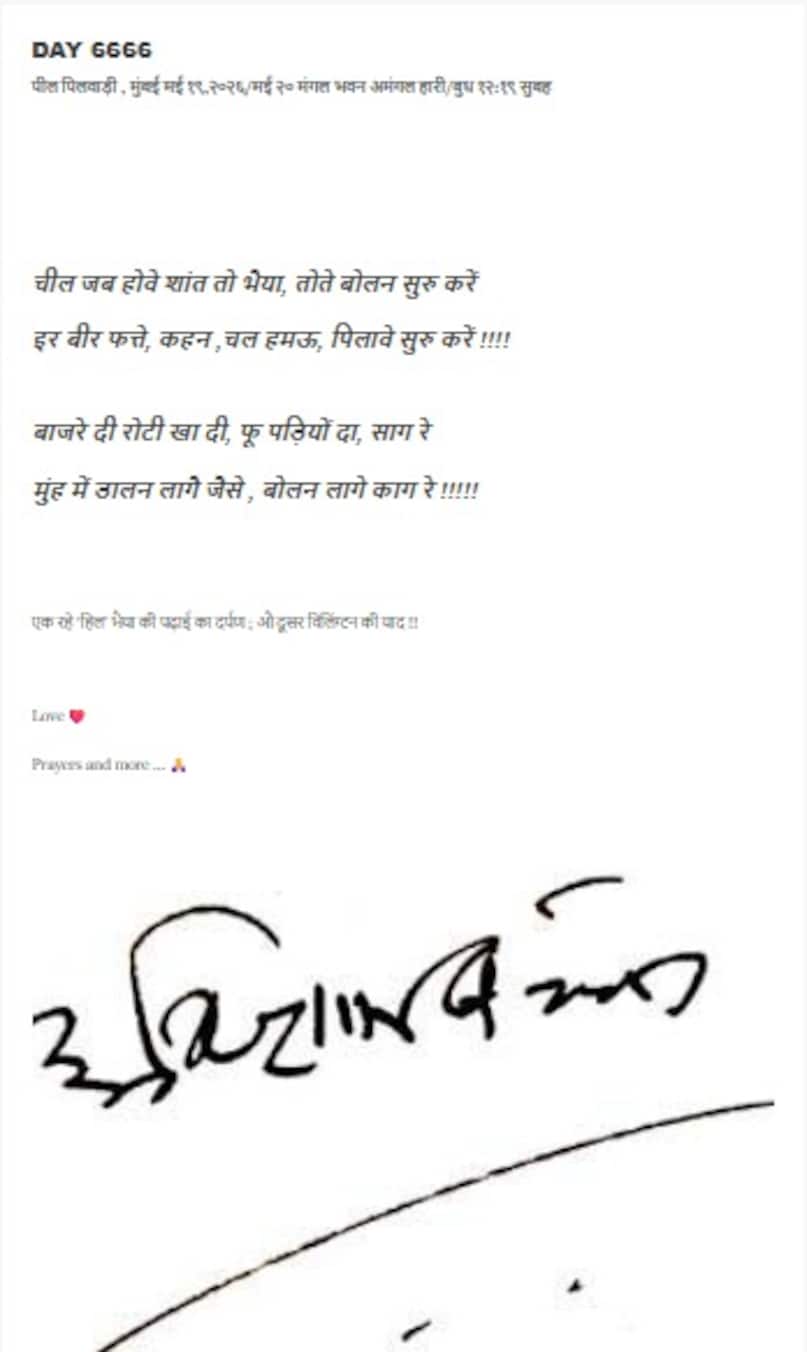 DAY 6666
पील पिलवाड़ी , मुंबई मई १९,२०२६/मई २० मंगल भवन अमंगल हारी/बुध १२:१९ सुबह
चील जब होवे शांत तो भैया, तोते बोलन सुरु करें
इर बीर फत्ते, कहन ,चल हमऊ, पिलावे सुरु करें !!!!
बाजरे दी रोटी खा दी, फू पड़ियों दा, साग रे
मुंह में डालन लागे जैसे , बोलन लागे काग रे !!!!!
एक रहे 'हिल' भैया की पढ़ाई का दर्पण ; औ दूसर विलिंग्टन की याद !!
Love ❤️
Prayers and more ... 🙏